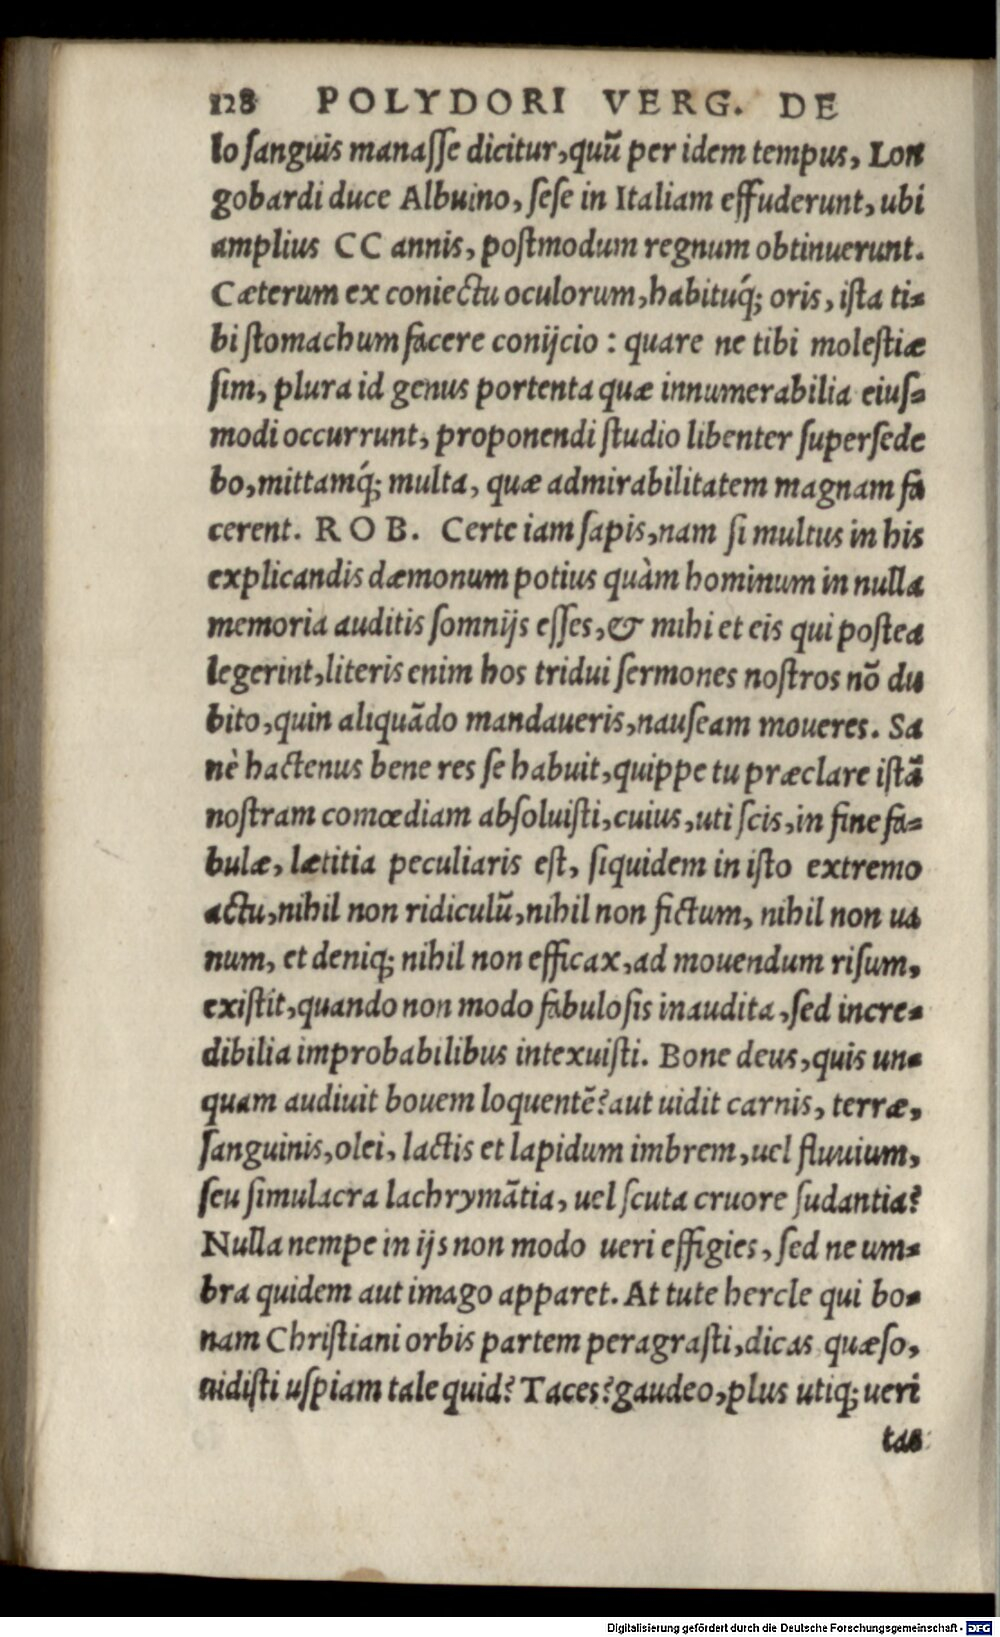 128 POLYDORI VERG. DE
lo ſanguis manaſſe dicitur, quū per idem tempus, Lon
gobardi duce Albuino, ſeſe in Italiam effuderunt, ubi
amplius CC annis, poſtmodum regnum obtinuerunt.
Cæterum ex coniectu oculorum, habituq́; oris, iſta ti-
bi ſtomachum facere conijcio : quare ne tibi moleſtiæ
ſim, plura id genus portenta quæ innumerabilia eiuſ-
modi occurrunt, proponendi ſtudio libenter ſuperſede
bo, mittamq́; multa, quæ admirabilitatem magnam fa
cerent. ROB. Certe iam ſapis, nam ſi multus in his
explicandis dæmonum potius quàm hominum in nulla
memoria auditis ſomnijs eſſes, & mihi et eis qui poſtea
legerint, literis enim hos tridui ſermones noſtros nō du
bito, quin aliquādo mandaueris, nauſeam moueres. Sa
nè hactenus bene res ſe habuit, quippe tu præclare iſtā
noſtram comœdiam abſoluiſti, cuius, uti ſcis, in fine fa-
bulæ, lætitia peculiaris eſt, ſiquidem in iſto extremo
actu, nihil non ridiculū, nihil non fictum, nihil non ua
num, et deniq; nihil non efficax, ad mouendum riſum,
exiſtit, quando non modo fabuloſis inaudita, ſed incre-
dibilia improbabilibus intexuiſti. Bone deus, quis un-
quam audiuit bouem loquentē? aut uidit carnis, terræ,
ſanguinis, olei, lactis et lapidum imbrem, uel fluuium,
ſeu ſimulacra lachrymātia, uel ſcuta cruore ſudantia?
Nulla nempe in ijs non modo ueri effigies, ſed ne um-
bra quidem aut imago apparet. At tute hercle qui bo-
nam Chriſtiani orbis partem peragraſti, dicas quæſo,
uidiſti uſpiam tale quid? Taces? gaudeo, plus utiq; ueri
tas
Digitalisierung gefördert durch die Deutsche Forschungsgemeinschaft - DFG